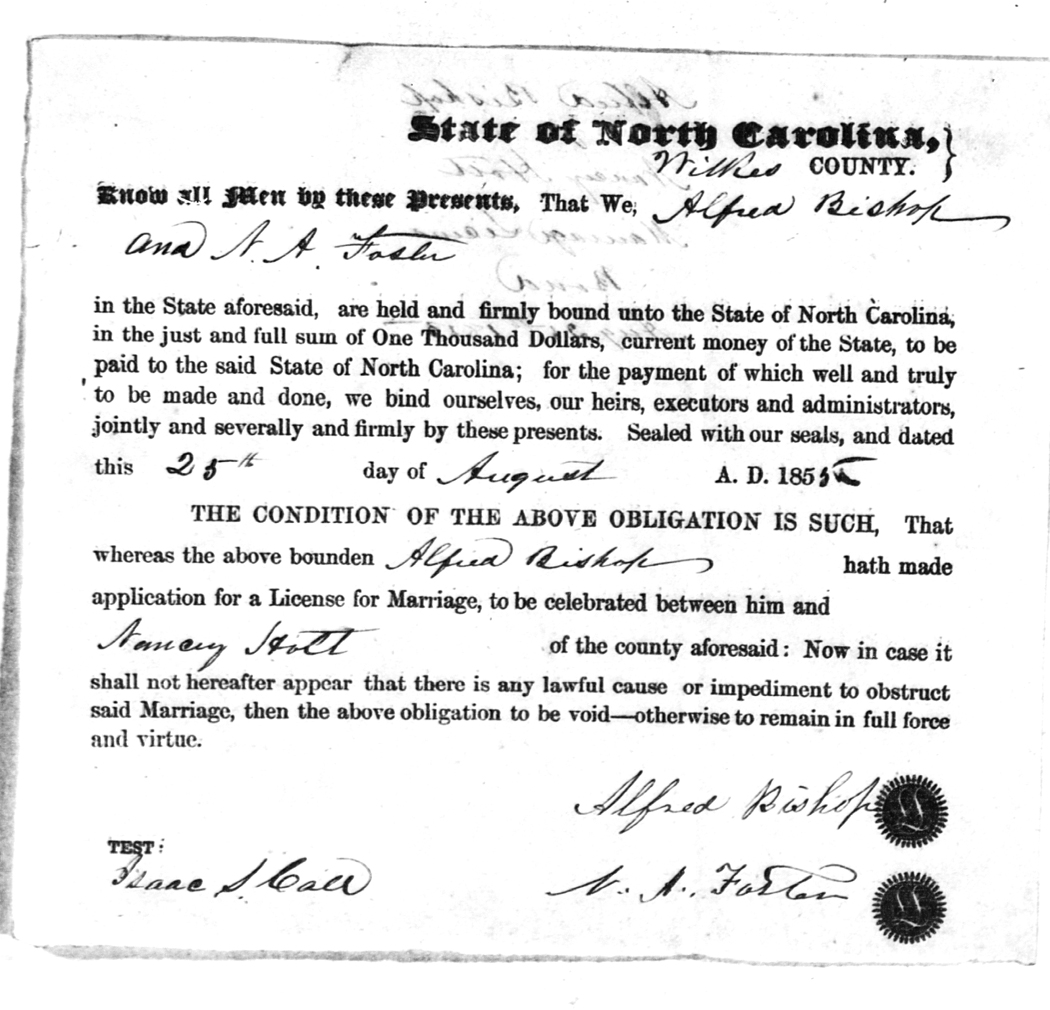 State of North Carolina,
Wilkes COUNTY.
Know all Men by these Presents, That We, Alfred Bishop
and N. A. Foster
in the State aforesaid, are held and firmly bound unto the State of North Carolina,
in the just and full sum of One Thousand Dollars, current money of the State, to be
paid to the said State of North Carolina; for the payment of which well and truly
to be made and done, we bind ourselves, our heirs, executors and administrators,
jointly and severally and firmly by these presents. Sealed with our seals, and dated
this 25th day of August A. D. 185
THE CONDITION OF THE ABOVE OBLIGATION IS SUCH, That
whereas the above bounden Alfred Bishop hath made
application for a License for Marriage, to be celebrated between him and
Nancy Holt of the county aforesaid: Now in case it
shall not hereafter appear that there is any lawful cause or impediment to obstruct
said Marriage, then the above obligation to be void—otherwise to remain in full force
and virtue.
Alfred Bishop
TEST:
Isaac S. Call
N. A. Foster